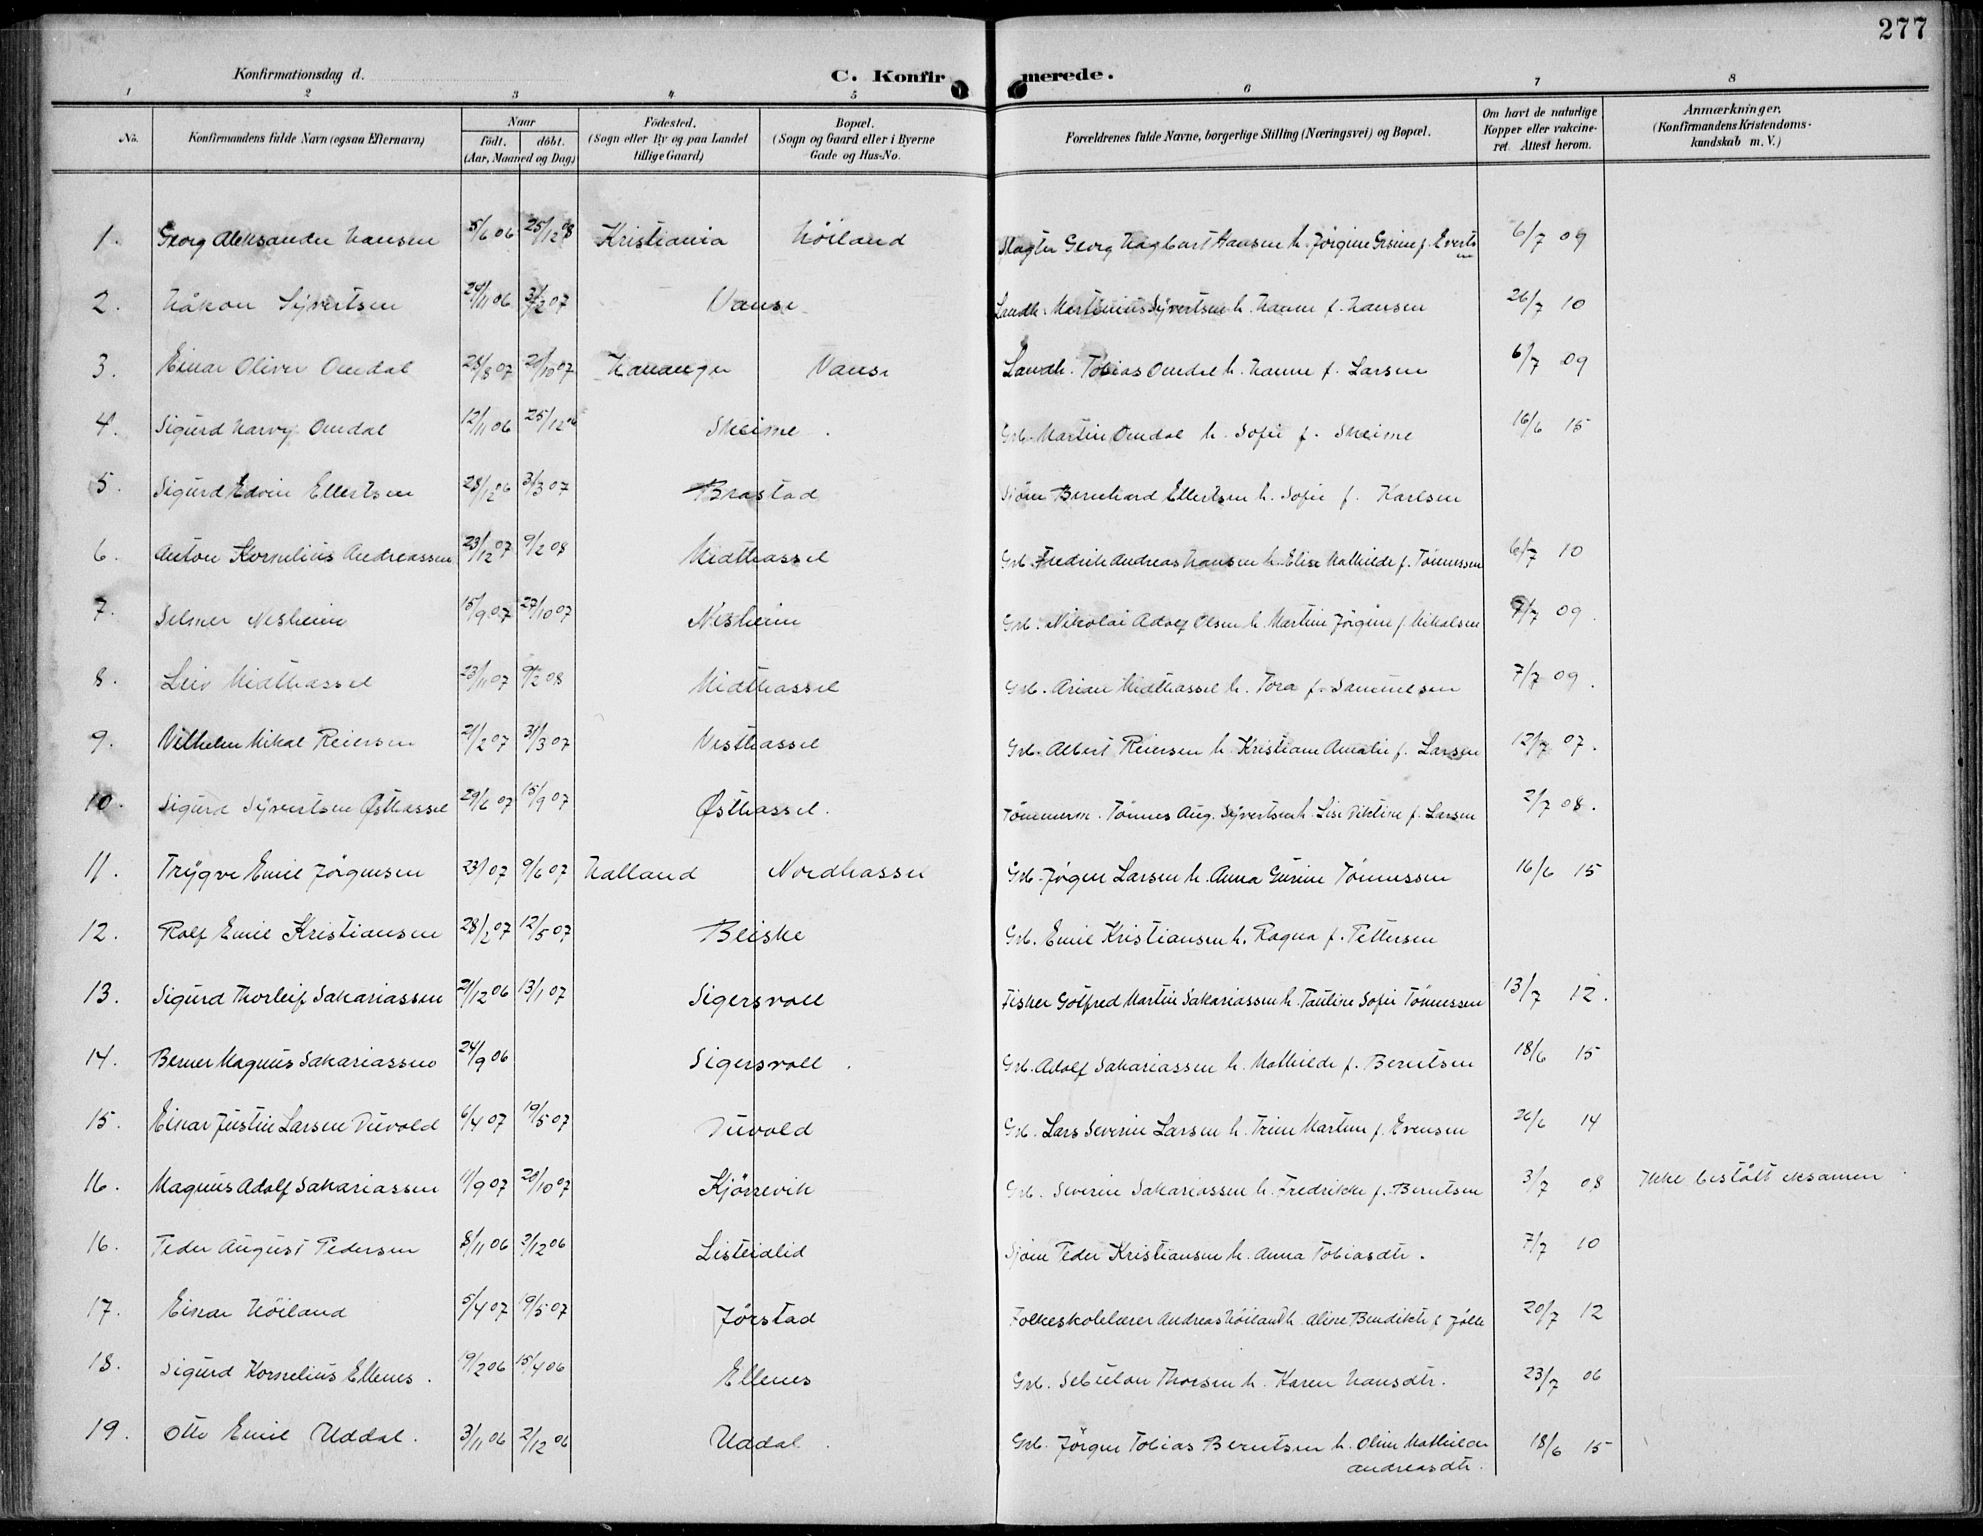 277
Konfirmationsdag d. C. Konfirmerede.
1 2 3 4 5 6 7 8
No. Konfirmandens fulde Navn (ogsaa Efternavn) Naar født. døbt. (Aar, Maaned og Dag) Fødested. (Sogn eller By og paa Landet tillige Gaard) Bopæl. (Sogn og Gaard eller i Byerne Gade og Hus-No. Forældrenes fulde Navne, borgerlige Stilling (Næringsvei) og Bopæl. Om havt de naturlige Kopper eller vakcineret. Attest herom. Anmærkninger. (Konfirmandens Kristendomskundskab m. V.)
1. Georg Aleksander Hansen 5/6 06 25/12 08 Kristiania Höiland Slagter Georg Hagbart Hansen h. Jörgine Gesine f. Evertsen 6/7 09
2. Håkon Sÿvertsen 24/11 06 3/2 07 Vanse Landh. Martinius Sÿvertsen h. Hanne f. Hansen 26/7 10
3. Einar Oliver Omdal 28/8 07 20/10 07 Vanse Landh. Tobias Omdal h. Hanne f. Larsen 6/7 09
4. Sigurd Harry Omdal 12/11 06 25/12 06 Skeime. Grb. Martin Omdal h. Sofie f. Skeime 16/6 15
5. Sigurd Edvin Ellertsen 28/12 06 31/3 07 Brastad Sjöm Bernhard Ellertsen h. Sofie f. Karlsen
6. Anton Kornelius Andreassen 23/12 07 9/2 08 Midthassel Grb. Fredrik Andreas Hansen h. Elise Mathilde f. Tönnessen 6/7 10
7. Selmer Nesheim 15/9 07 27/10 07 Nesheim Grb. Nikolai Adolf Olsen h. Martine Jörgine f. Mikalsen 7/7 09
8. Leiv Midthassel 23/11 07 9/2 08 Midthassel Grb. Arian Midthassel h. Tora f. Samuelsen 7/7 09.
9. Vilhelm Mikal Reiersen 21/2 07 31/3 07 Vesthassel Grb. Albert Reiersen h. Kristiane Amalie f. Larsen 12/7 07.
10. Sigurd Sÿvertsen Østhassel 29/6 07 15/9 07 Østhassel. Tömmerm. Tönnes Aug. Sÿvertsen h. Lise Viktine f. Larsen 2/7 08.
11. Trÿgve Emil Jörgensen 23/1 07 9/6 07 Halland Nordhassel Grb. Jörgen Larsen h. Anna Gurine Tönnessen 16/6 15
12. Rolf Emil Kristiansen 28/2 07 12/5 07 Beiske Grb. Emil Kristiansen h. Ragna f. Pettersen
13. Sigurd Thorleif Sakariassen 21/12 06 13/1 07 Sigersvoll Fisker Gotfred Martin Sakariassen h. Pauline Sofie Tönnessen 13/7 12.
14. Berner Magnus Sakariassen 24/9 06 Sigersvoll. Grb. Adolf Sakariassen h. Mathilde f. Berntsen 18/6 15
15. Einar Justin Larsen Duvold 6/4 07 19/5 07 Duvold Grb. Lars Severin Larsen h. Trine Martine f. Evensen 26/6 14
16. Magnus Adolf Sakariassen 11/9 07 20/10 07 Kjörrevik Grb. Severin Sakariassen h. Fredrikke f. Berntsen 3/7 08 Ikke bestått eksamen
16. Peder August Pedersen 8/11 06 2/12 06 Listeidlid Sjöm Peder Kristiansen h. Anna Tobiasdtr. 7/7 10
17. Einar Höiland 5/4 07 19/5 07 Jörstad Folkeskolelærer Andreas Höiland h. Aline Bendikte f. Jölle 20/7 12
18. Sigurd Kornelius Ellenes. 19/2 06 15/4 06 Ellenes Grb. Sebulon Thorsen h. Karen Hansdtr. 23/7 06
19. Otto Emil Uddal. 3/11 06 2/12 06 Uddal. Grb. Jörgen Tobias Berntsen h. Oline Mathilde Andreasdtr. 18/6 15